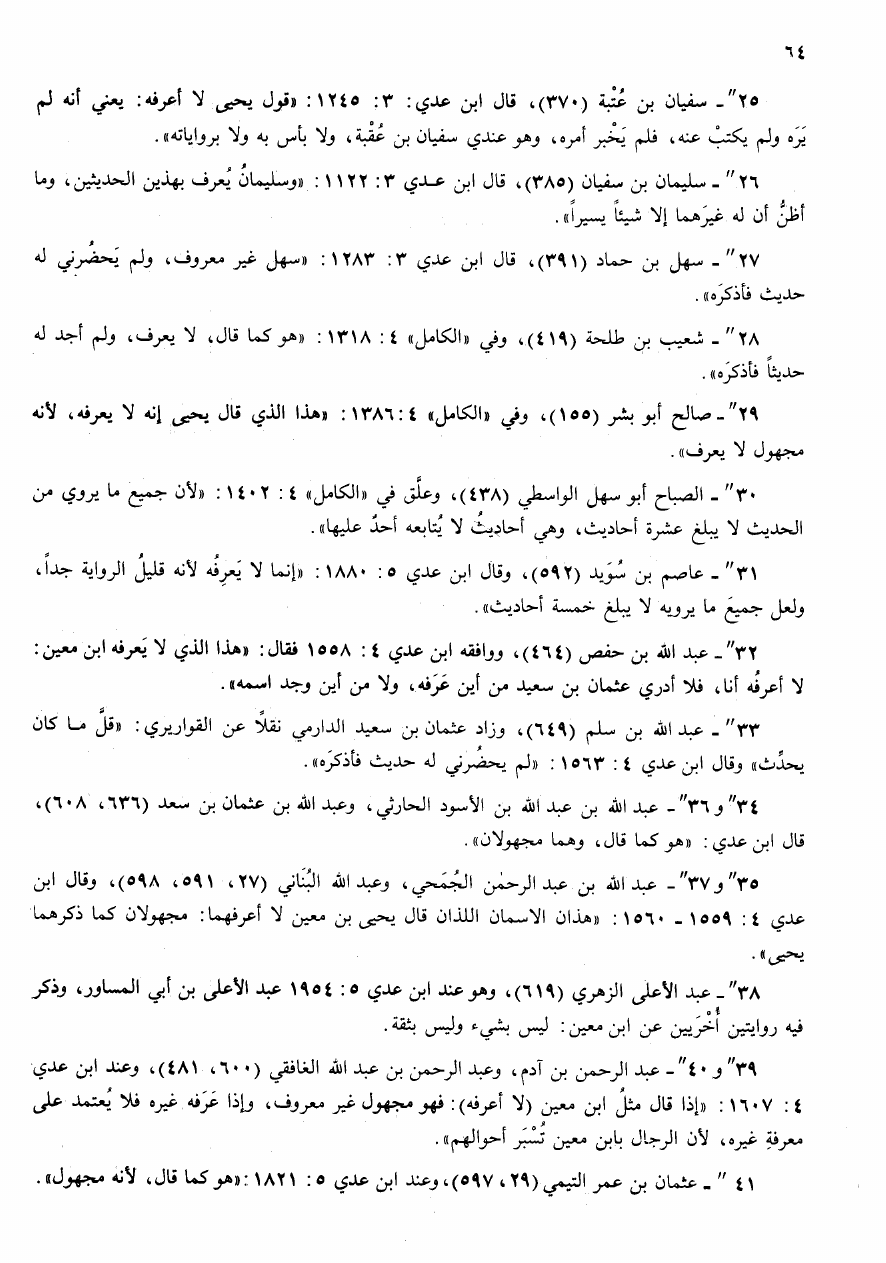 ٦٤
٢٥" ـ سفيان بن عُتْبة (٣٧٠)، قال ابن عدي: ٣: ١٢٤٥: «قول يحيى لا أعرفه: يعني أنه لم
يَرَه ولم يكتبْ عنه، فلم يَخْبر أمره، وهو عندي سفيان بن عُقْبة، ولا بأس به ولا برواياته».
٢٦" ـ سليمان بن سفيان (٣٨٥)، قال ابن عـدي ٣: ١١٢٢: «وسليمانُ يُعرف بهذين الحديثين، وما
أظنُّ أن له غيرَهما إلا شيئاً يسيراً».
٢٧" ـ سهل بن حماد (٣٩١)، قال ابن عدي ٣: ١٢٨٣: «سهل غير معروف، ولم يَحضُرني له
حديث فأذكرَه».
٢٨" ـ شعيب بن طلحة (٤١٩)، وفي «الكامل» ٤: ١٣١٨: «هو كما قال، لا يعرف، ولم أجد له
حديثاً فأذكرَه».
٢٩" ـ صالح أبو بشر (١٥٥)، وفي «الكامل» ٤: ١٣٨٦: «هذا الذي قال يحيى إنه لا يعرفه، لأنه
مجهول لا يعرف».
٣٠" ـ الصباح أبو سهل الواسطي (٤٣٨)، وعلَّق في «الكامل» ٤: ١٤٠٢: «لأن جميع ما يروي من
الحديث لا يبلغ عشرة أحاديث، وهي أحاديثُ لا يُتابعه أحدٌ عليها».
٣١" ـ عاصم بن سُوَيد (٥٩٢)، وقال ابن عدي ٥: ١٨٨٠: «إنما لا يَعرِفُه لأنه قليلُ الرواية جداً،
ولعل جميعَ ما يرويه لا يبلغ خمسة أحاديث».
٣٢" ـ عبد الله بن حفص (٤٦٤)، ووافقه ابن عدي ٤: ١٥٥٨ فقال: «هذا الذي لا يَعرفه ابن معين:
لا أعرفُه أنا، فلا أدري عثمان بن سعيد من أين عَرَفه، ولا من أين وجد اسمه».
٣٣" ـ عبد الله بن سلم (٦٤٩)، وزاد عثمان بن سعيد الدارمي نقلاً عن القواريري: «قلَّ مـا كان
يحدِّث» وقال ابن عدي ٤: ١٥٦٣: «لم يحضُرني له حديث فأذكرَه».
٣٤" و ٣٦" ـ عبد الله بن عبد الله بن الأسود الحارثي، وعبد الله بن عثمان بن سعد (٦٣٦، ٦٠٨)،
قال ابن عدي: «هو كما قال، وهما مجهولان».
٣٥" و ٣٧" ـ عبد الله بن عبد الرحمٰن الجُمَحي، وعبد الله البُنَاني (٢٧، ٥٩١، ٥٩٨)، وقال ابن
عدي ٤: ١٥٥٩ ـ ١٥٦٠: «هذان الاسمان اللذان قال يحيى بن معين لا أعرفهما: مجهولان كما ذكرهما
يحيى».
٣٨" ـ عبد الأعلى الزهري (٦١٩)، وهو عند ابن عدي ٥: ١٩٥٤ عبد الأعلى بن أبي المساور، وذكر
فيه روايتين أُخْرَيين عن ابن معين: ليس بشيء وليس بثقة.
٣٩" و ٤٠" ـ عبد الرحمن بن آدم، وعبد الرحمن بن عبد الله الغافقي (٦٠٠، ٤٨١)، وعند ابن عدي
٤: ١٦٠٧: «إذا قال مثلُ ابن معين (لا أعرفه): فهو مجهول غير معروف، وإذا عَرَفه غيره فلا يُعتمد على
معرفةِ غيره، لأن الرجال بابن معين تُسْبَر أحوالهم».
٤١ " ـ عثمان بن عمر التيمي (٢٩، ٥٩٧)، وعند ابن عدي ٥: ١٨٢١: «هو كما قال، لأنه مجهول».